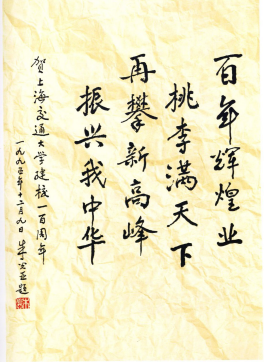 百年辉煌业
桃李满天下
再攀新高峰
振兴我中华
贺上海交通大学建校一百周年
一九九五年十二月九日